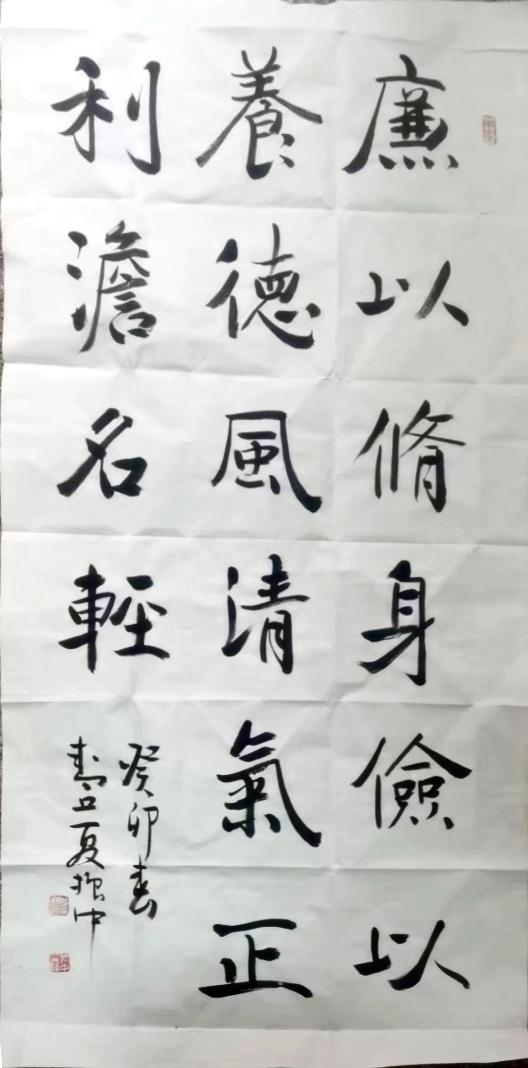 廉以脩身儉以
養德風清氣正
利澹名輕
癸卯春
壽丘夏振中